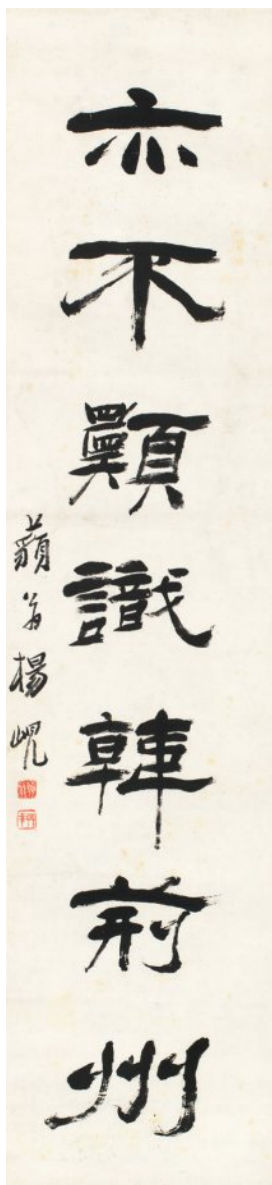 亦不顥識韓荊州
藐翁楊峴